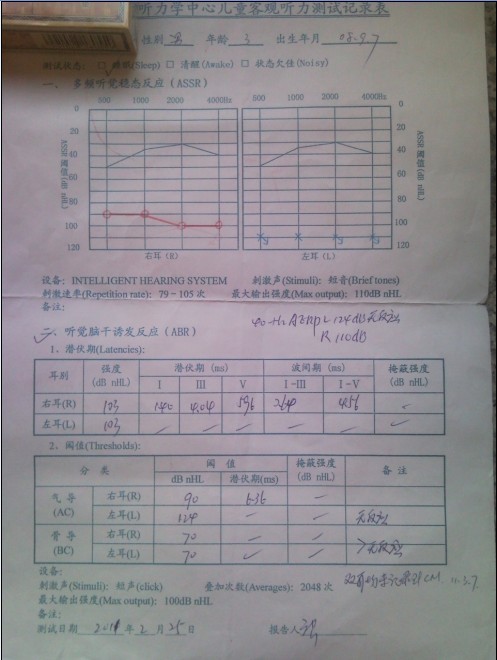 听力学中心儿童客观听力测试记录表
性别 男 年龄 3 出生年月 08.9.7
测试状态: □ 睡眠(Sleep) □ 清醒(Awake) □ 状态欠佳(Noisy)
一、多频听觉稳态反应(ASSR)
500 1000 2000 4000Hz 500 1000 2000 4000Hz
0 0
20 20
40 40
60 60
80 80
100 100
120 120
ASSR 阈值(dB nHL) ASSR 阈值(dB nHL)
右耳(R) 左耳(L)
设备: INTELLIGENT HEARING SYSTEM 刺激声(Stimuli): 短音(Brief tones)
刺激速率(Repetition rate): 79-105 次 最大输出强度(Max output): 110dB nHL
备注:
40-Hz AERP L 124dB 无反应
R 110dB
二、听觉脑干诱发反应(ABR)
1、潜伏期(Latencies):
耳别 强度(dB nHL) 潜伏期 (ms) 波间期 (ms) 掩蔽强度(dB nHL)
I III V I-III I-V
右耳(R) 103 1.40 4.04 5.96 2.64 4.56
左耳(L) 103
2、阈值(Thresholds):
分 类 阈 值 掩蔽强度(dB nHL) 备 注
dB nHL 潜伏期(ms)
气 导(AC) 右耳(R) 90 6.36 —
左耳(L) 124 — — 无反应
骨 导(BC) 右耳(R) 70 — —
左耳(L) 70 >无反应
设备:
刺激声(Stimuli): 短声(click) 叠加次数(Averages): 2048 次
双耳均未记录到CM
最大输出强度(Max output): 100dB nHL
备注:
测试日期 2011 年 2 月 25 日 报告人